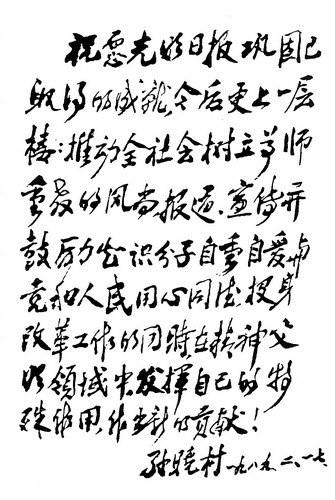 祝愿光明日报巩固已
取得的成就,今后更上一层
楼:推动全社会树立尊师
重教的风尚报道、宣传并
鼓励知识分子自重自爱,与
党和人民同心同德,投身
改革工作的同时在精神文
明领域中发挥自己的特
殊作用,作出新的贡献!
孙晓村 一九八九.二.一七